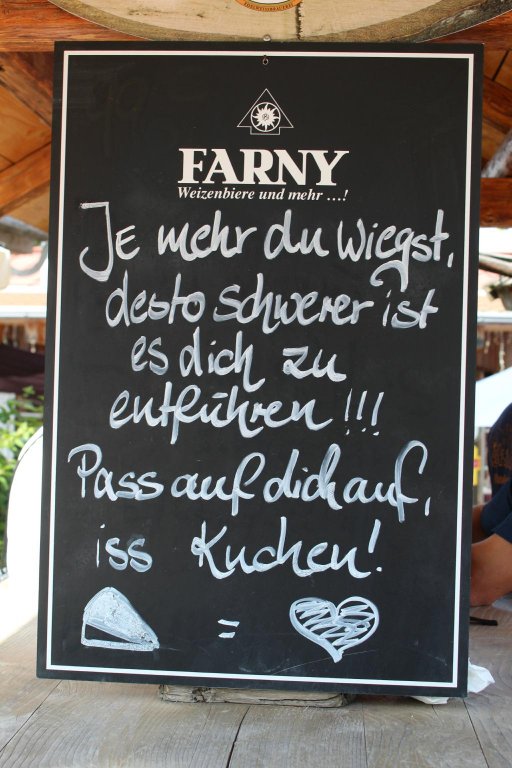 FARNY
Weizenbiere und mehr ...!
Je mehr du wiegst,
desto schwerer ist
es dich zu
entführen!!!
Pass auf dich auf,
iss Kuchen!
=